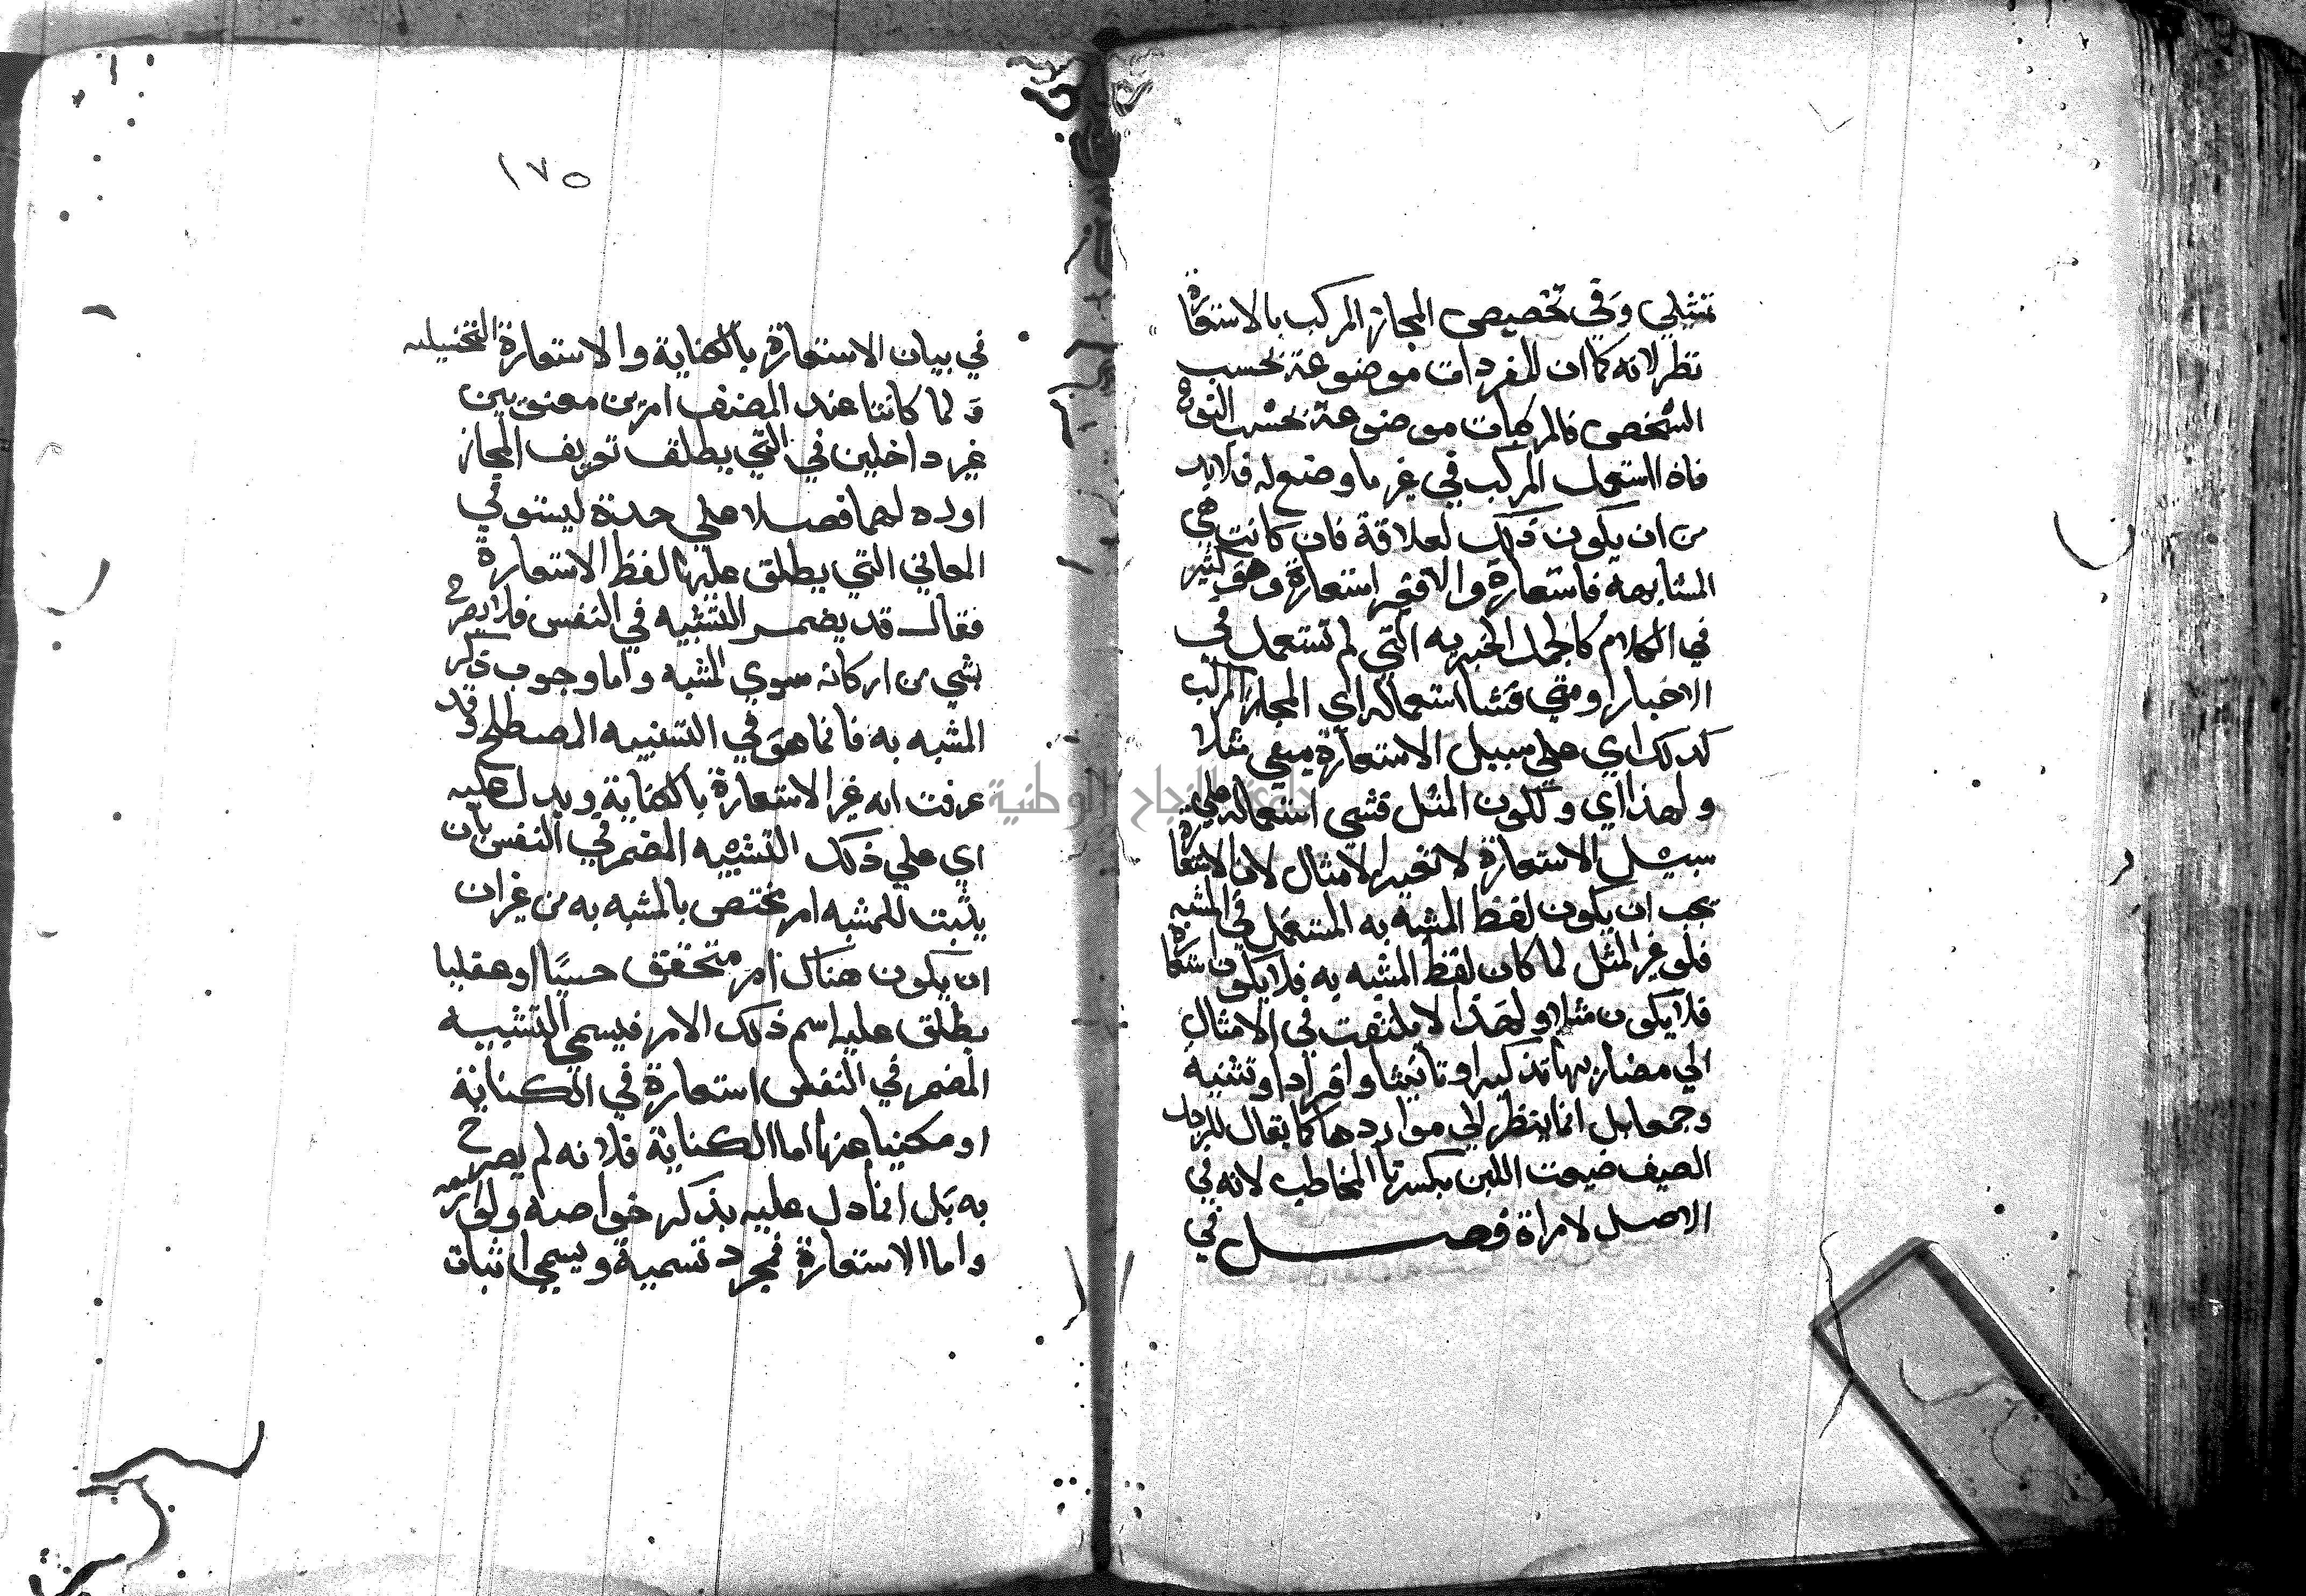 تمثيلي وفي تخصيص المجاز المركب بالاستعارة
نظر لانه كما ان المفردات موضوعة بحسب
الشخص فالمركبات موضوعة بحسب النوع
فاذا استعمل المركب في غير ما وضع له فلابد
من ان يكون ذلك لعلاقة فان كانت هي
المشابهه فاستعارة والا فغير استعارة وهو كثير
في الكلام كالجمل الخبريه التي لم تستعمل في
الاخبار ومتي فشا استعماله اي المجاز المركب
كذلك اي علي سبيل الاستعارة يسمي مثلا
ولهذا اي ولكون المثل فشي استعماله علي
سبيل الاستعارة لا تغير الامثال لان الاستعارة
يجب ان يكون لفظ المشبه به المستعمل في المشبه
فلو غير المثل لما كان لفظ المشبه به فلا يكون استعارة
فلا يكون مثلا ولهذا لا يلتفت في الامثال
الي مضاربها تذكيرا وتانيثا وافرادا وتثنية
وجمعا بل انما ينظر الي مواردها كما يقال للرجل
الصيف ضيعت اللبن بكسر تا المخاطب لانه في
الاصل لامراة فصل في
١٧٥
في بيان الاستعارة بالكناية والاستعارة التخييليه
ولما كانتا عند المصنف امرين معنويين
غير داخلين في التي يطلق تعريف المجاز
اورد لهما فصلا علي حدة ليستوفي
المعاني التي يطلق عليها لفظ الاستعارة
فقال قد يضمر التشبيه في النفس فلا يصرح
بشي من اركانه سوي المشبه واما وجوب ذكر
المشبه به فانما هو في التشبيه المصطلح وقد
عرفت انه غير الاستعارة بالكناية ويدل عليه
اي علي ذلك التشبيه المضمر في النفس بان
يثبت للمشبه امر مختص بالمشبه به من غير ان
ان يكون هناك امر متحقق حسيا او عقليا
يطلق عليه اسم ذلك الامر فيسمي التشبيه
المضمر في النفس استعارة في الكناية
او مكنيا عنها اما الكناية فلانه لم يصرح
به بل انما دل عليه بذكر خواصه ولوازمه
واما الاستعارة فمجرد تسمية ويسمي اثبات
جامعة النجاح الوطنية